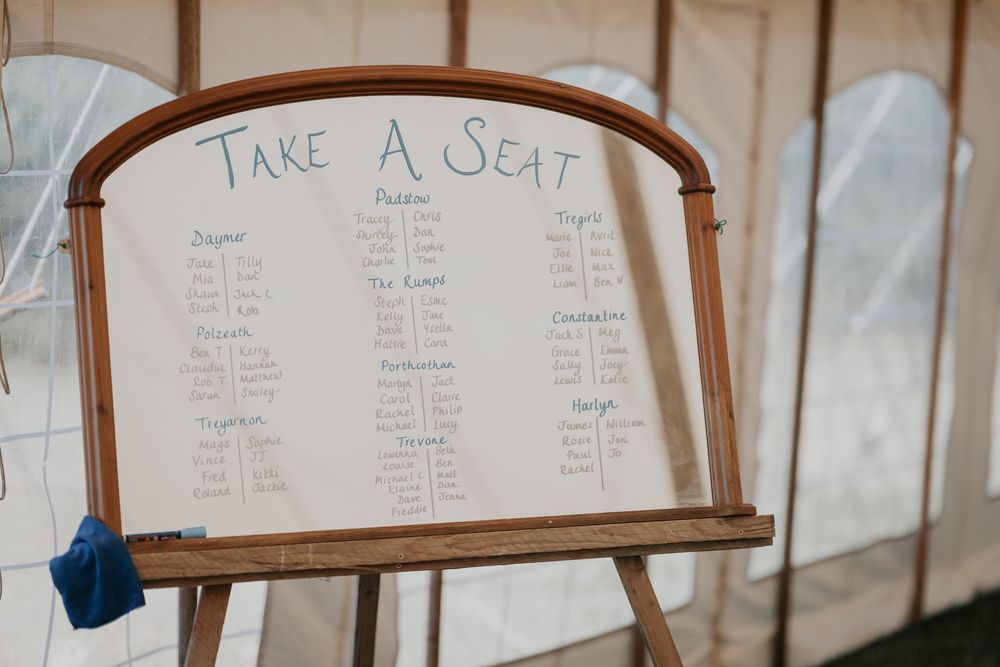 TAKE A SEAT
Daymer
Jake Tilly
Mia Dan
Shaun Jack C
Steph Rob
Polzeath
Ben T Kerry
Claudia Hannah
Rob T Matthew
Sarah Smiley
Treyarnon
Mags Sophie
Vince JJ
Fred Kikki
Roland Jackie
Padstow
Tracey Chris
Shirley Dan
John Sophie
Charlie Tom
The Rumps
Steph Esme
Kelly Jane
Dave Ysella
Hattie Cara
Porthcothan
Martyn Jack
Carol Claire
Rachel Philip
Michael Lucy
Trevone
Lowenna Beth
Louise Ben
Michael C Matt
Elaine Dan
Dave Jenna
Freddie
Tregirls
Marie Avril
Joe Nick
Ellie Max
Liam Ben W
Constantine
Jack S Meg
Grace Emma
Sally Joey
Lewis Katie
Harlyn
James William
Rosie Jon
Paul Jo
Rachel